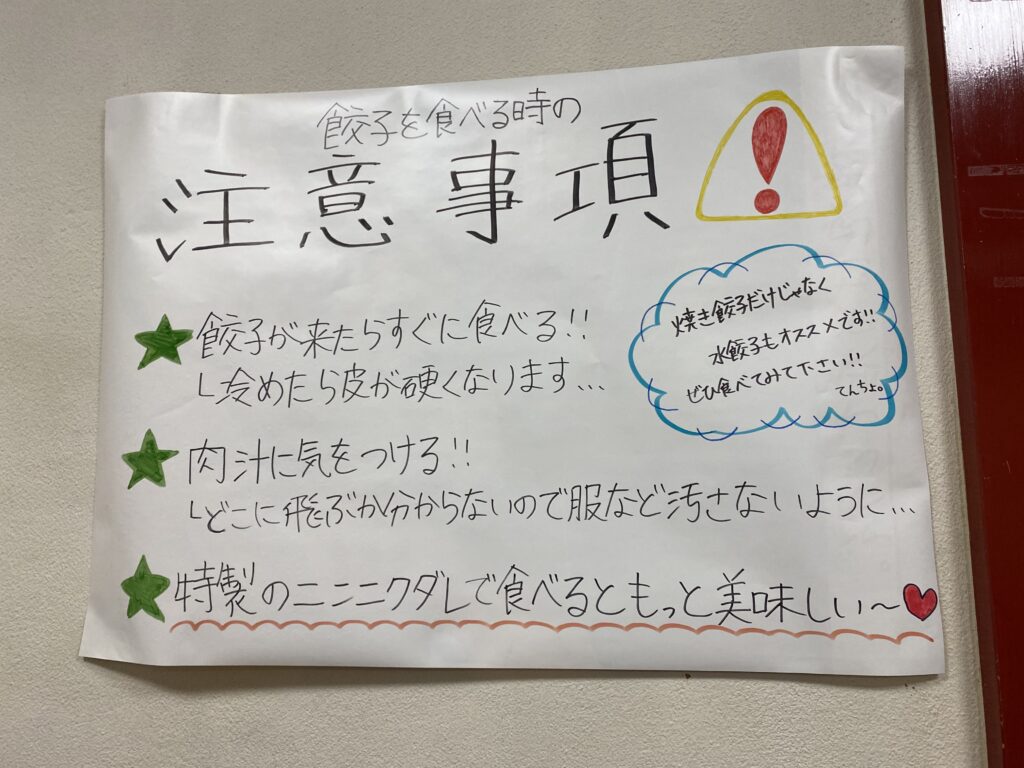 餃子を食べる時の
注意事項
餃子が来たらすぐに食べる!!
└冷めたら皮が硬くなります...
焼き餃子だけじゃなく
水餃子もオススメです!!
ぜひ食べてみて下さい!!
てんちょ。
肉汁に気をつける!!
└どこに飛ぶか分からないので服など汚さないように...
特製のニンニクダレで食べるともっと美味しい〜